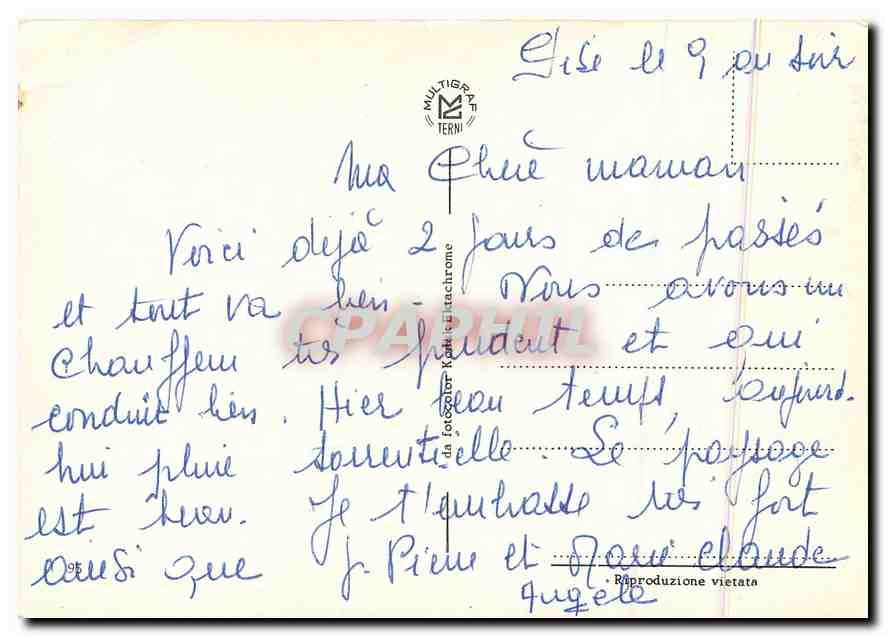 le 9 au soir
MULTIGRAF
TERNI
Ma Chère maman
Voici déjà 2 jours de passés
et tout va bien - Nous avons un
Chauffeur très prudent et qui
conduit bien. Hier beau temps, aujourd-
hui pluie torrentielle. Le paysage
est beau. Je t'embrasse très fort
ainsi que J. Pierre et Marie Claude
Angèle
da fotocolor Kodak Ektachrome
CPAPHIL
95
Riproduzione vietata